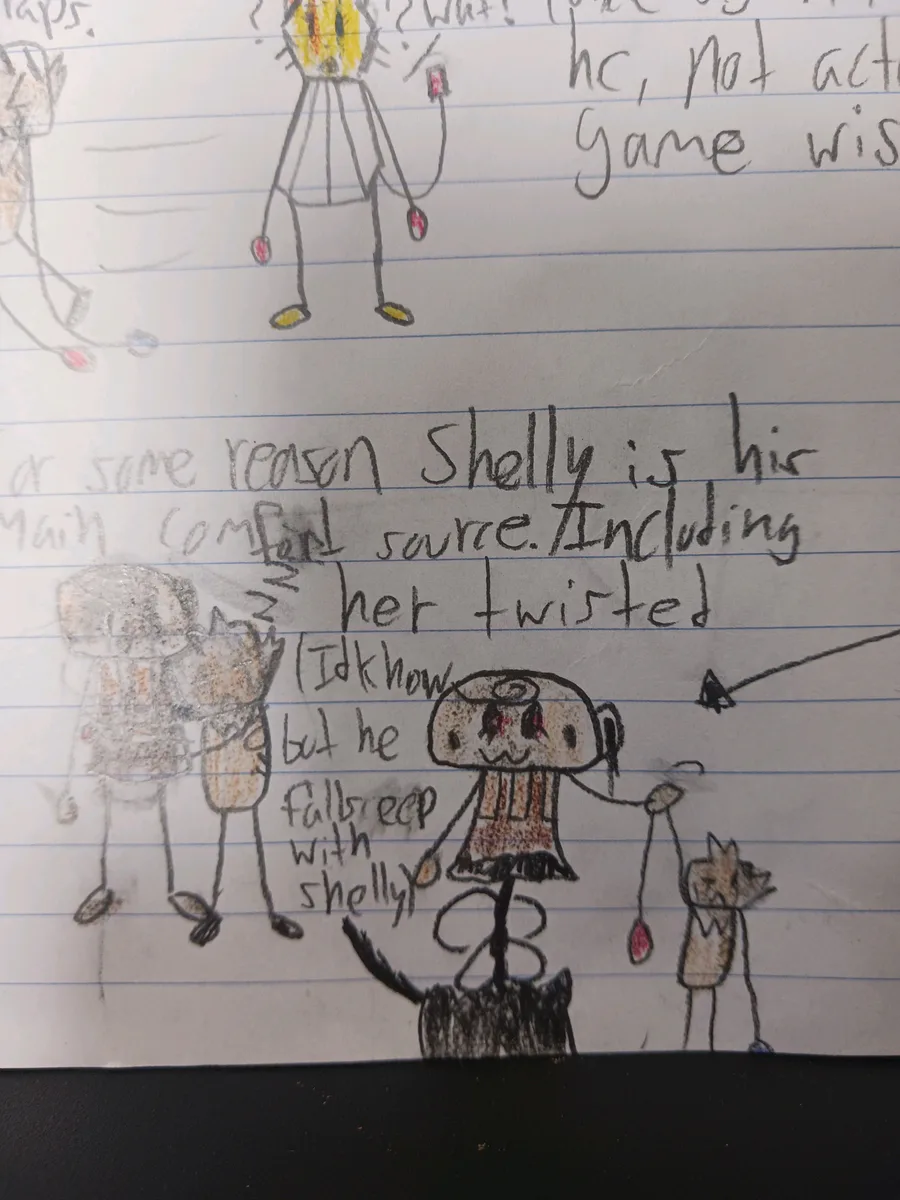 aps.
? ? what!
hc, not act
game wis
or some reason Shelly is his
main comfort source. /Including
her twisted
(Idk how
but he
falls
with
shelly)